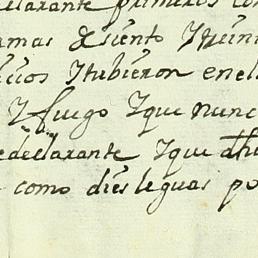 declarante primeros con
amas asiento Y nun
cios Y tubieron enel
Y fuego Y que nunc
edeclarante Y que dho
como dies leguas po